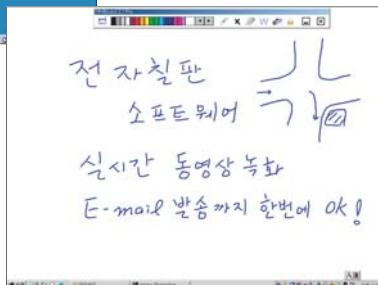 전자칠판
소프트웨어
실시간 동영상 녹화
E-mail 발송까지 한번에 OK!